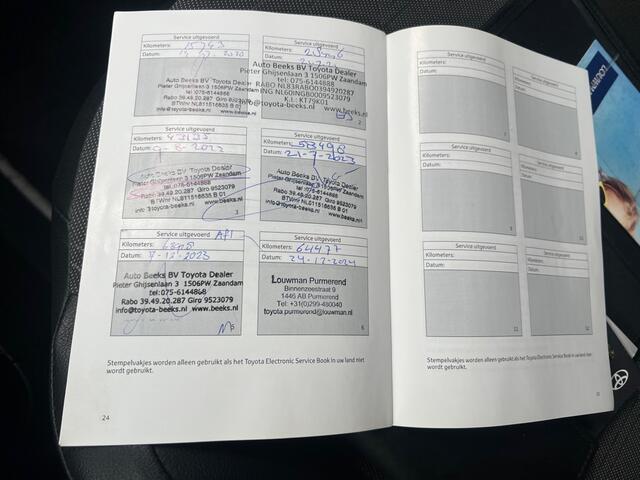 Service uitgevoerd
Kilometers: 15763
Datum:
Auto Beeks BV Toyota Dealer
Pieter Ghijsenlaan 3 1506PW Zaandam
tel:075-6144868
Rabo 39.49.20.287 Giro 9523079
BTWnr NL811516635 B 01
info@toyota-beeks.nl www.beeks.nl
Service uitgevoerd
Kilometers:
Datum:
Auto Beeks BV Toyota Dealer
Pieter Ghijsenlaan 3 1506PW Zaandam
tel:075-6144888
RABO NL83RABO0394920287
ING NL60INGB0009523079
K.I.: KT79K01
info@toyota-beeks.nl www.beeks.nl
2
Service uitgevoerd
Kilometers:
Datum:
Auto Beeks BV Toyota Dealer
Pieter Ghijsenlaan 3 1506PW Zaandam
tel:075-6144868
Rabo 39.49.20.287 Giro 9523079
BTWnr NL811516635 B 01
info@toyota-beeks.nl www.beeks.nl
3
Service uitgevoerd
Kilometers: 58498
Datum: 21-7-2023
Auto Beeks BV Toyota Dealer
Pieter Ghijsenlaan 3 1506PW Zaandam
tel:075-6144868
Rabo 39.49.20.287 Giro 9523079
BTWnr NL811516635 B 01
info@toyota-beeks.nl www.beeks.nl
Service uitgevoerd
Kilometers:
Datum: 7-12-2023
Auto Beeks BV Toyota Dealer
Pieter Ghijsenlaan 3 1506PW Zaandam
tel:075-6144868
Rabo 39.49.20.287 Giro 9523079
info@toyota-beeks.nl www.beeks.nl
5
Service uitgevoerd
Kilometers: 64477
Datum: 24-12-2024
Louwman Purmerend
Binnenzeestraat 9
1446 AB Purmerend
Tel: +31(0)299-480040
toyota.purmerend@louwman.nl
6
Stempelvakjes worden alleen gebruikt als het Toyota Electronic Service Book in uw land niet
wordt gebruikt.
24
Service uitgevoerd
Kilometers:
Datum:
7
Service uitgevoerd
Kilometers:
Datum:
Service uitgevoerd
Kilometers:
Datum:
Service uitgevoerd
Kilometers:
Datum:
Service uitgevoerd
Kilometers:
Datum:
11
Service uitgevoerd
Kilometers:
Datum:
12
Stempelvakjes worden alleen gebruikt als het Toyota Electronic Service Book in uw land niet
wordt gebruikt.